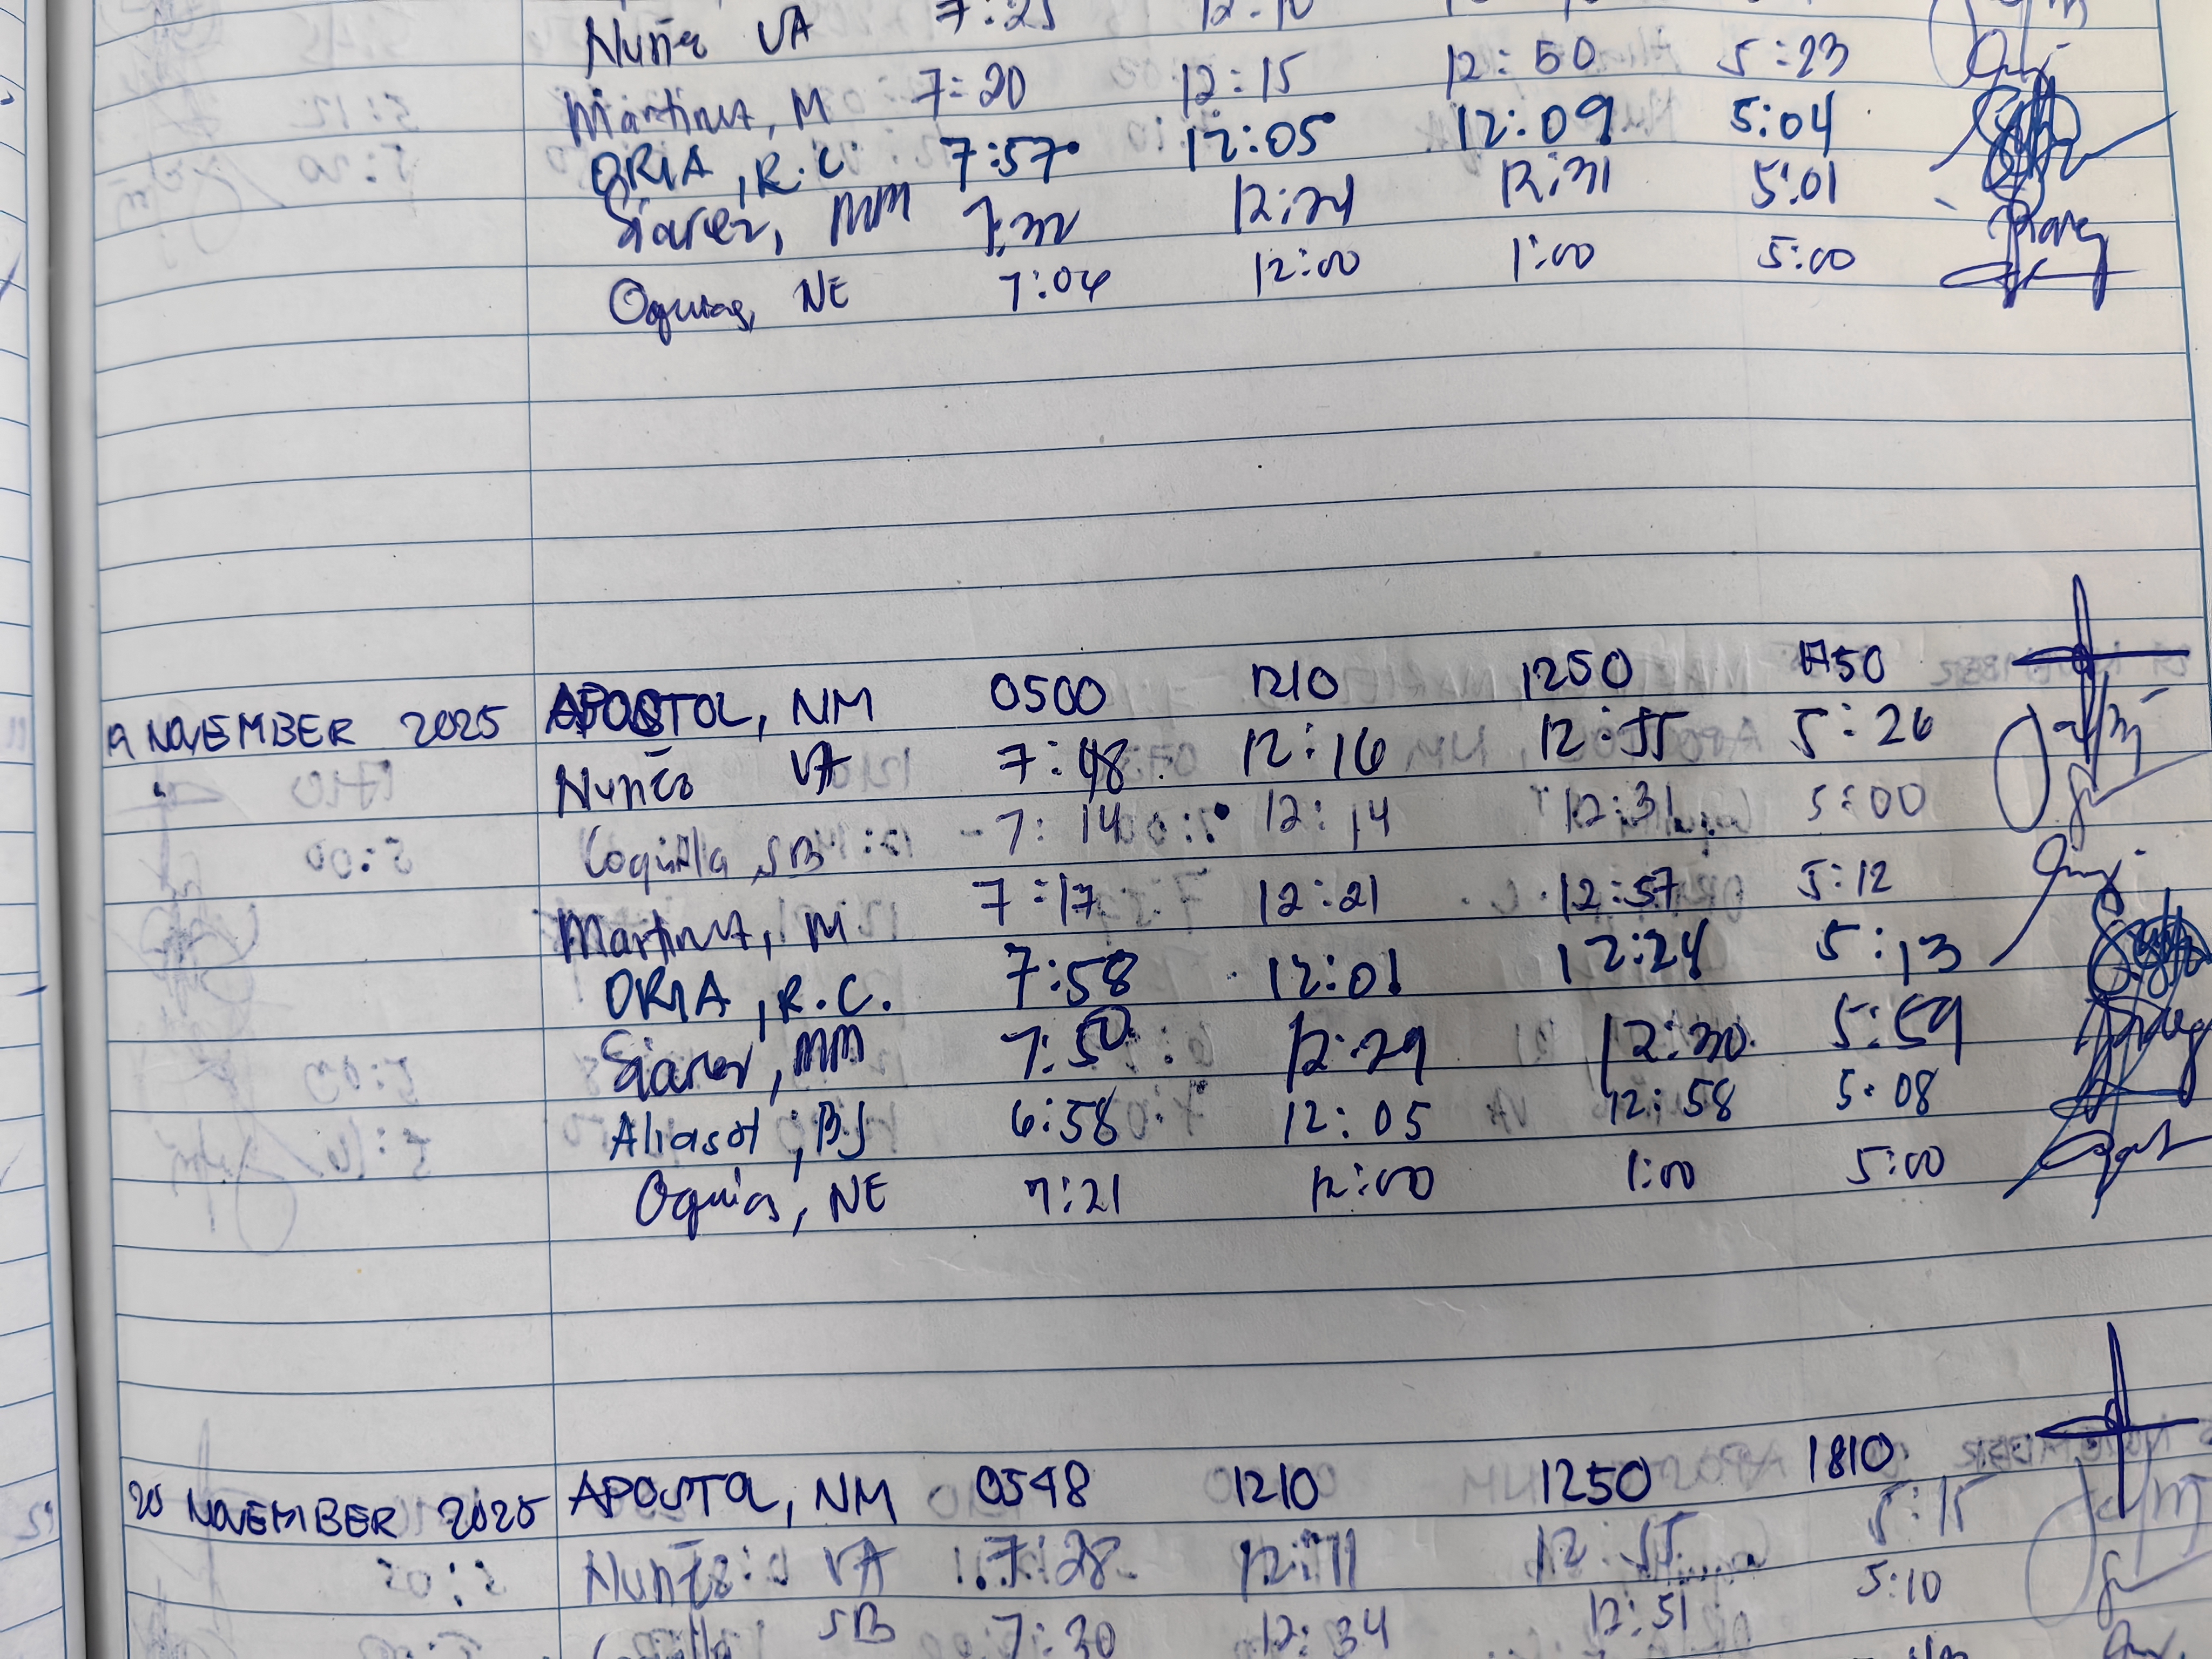 Nuñez VA 7:25 12:10
Martinez, M 7:20 12:15 12:50 5:23
ORIA, R.C 7:57 12:05 12:09 5:04
Siarez, MM 12:31 5:01
Oquias, NE 7:04 12:00 1:00 5:00
19 NOVEMBER 2025 APOSTOL, NM 0500 1210 1250 1750
" Nuñez VA 7:48 12:16 12:55 5:26
Coquilla, SB 7:14 12:14 12:31 5:00
Martinez, M 7:17 12:21 12:57 5:12
ORIA, R.C. 7:58 12:01 12:24 5:13
Siarez, MM 7:50 12:29 12:30 5:59
Aliasot, BJ 6:58 12:05 12:58 5:08
Oquias, NE 7:21 12:00 1:00 5:00
20 NOVEMBER 2025 APOSTOL, NM 0548 1210 1250 1810
Nuñez VA 7:28 12:11 12:55 5:15
Coquilla SB 7:30 12:34 12:51 5:10